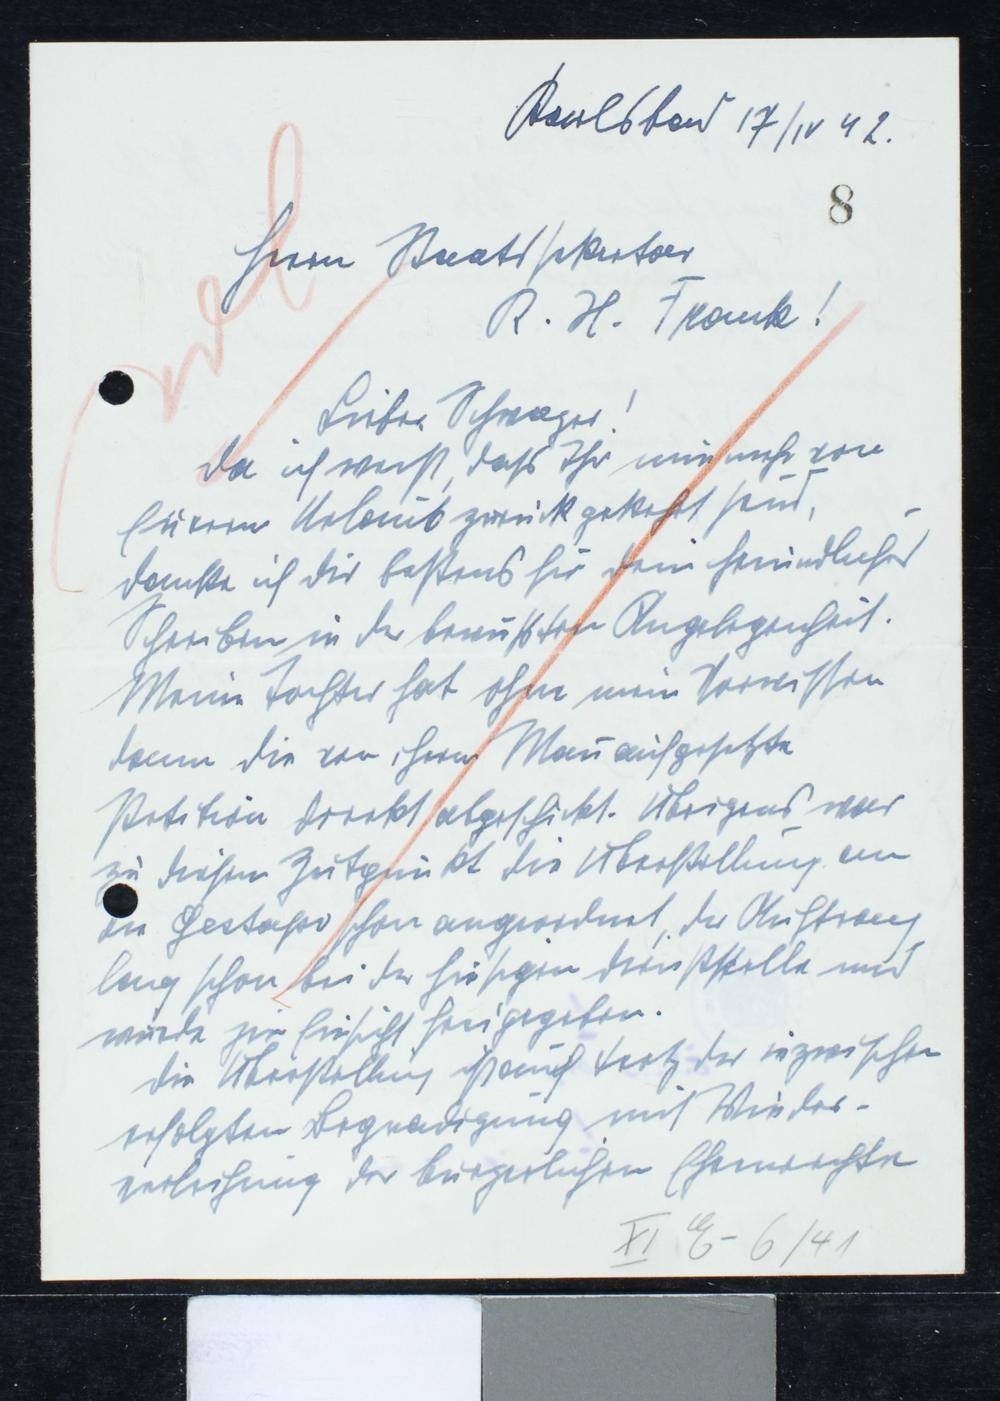 Karlsbad 17/IV 42.
8
Herrn Staatssekretär
K. H. Frank!
Lieber Schwager!
Da ich weiß, dass Ihr nunmehr von
Eurem Urlaub zurückgekehrt seid,
danke ich dir bestens für dein freundliches
Schreiben in der bewußten Angelegenheit.
Meine Tochter hat ohne mein Vorwissen
dann die von ihrem Mann aufgesetzte
Petition direkt abgeschickt. Übrigens war
zu diesem Zeitpunkt die Überstellung an
die Gestapo schon angeordnet, der Auftrag
lang schon bei der hiesigen Dienststelle und
wurde zur Einsicht freigegeben.
Die Überstellung ist auch trotz der inzwischen
erfolgten Begnadigung mit Wieder-
verleihung der bürgerlichen Ehrenrechte
XI 6/41